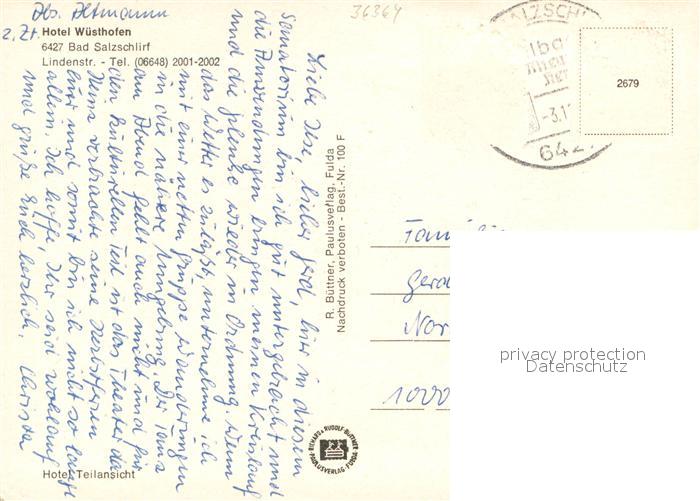 Abs. Altmann
z. Zt.
Hotel Wüsthofen
6427 Bad Salzschlirf
Lindenstr. - Tel. (06648) 2001-2002
36364
Liebe Ilse, lieber Gerd, hier in diesem
Sanatorium bin ich gut untergebracht und
die Anwendungen bringen meinen Kreislauf
und die Gelenke wieder in Ordnung. Wenn
das Wetter es zuläßt, unternehme ich
mit einer netten Gruppe Wanderungen
in die nähere Umgebung. Der Tanz
am Abend fehlt auch nicht und für
den kulturellen Teil ist das Theater da.
Heinz verbrachte seine Herbstferien
hier und somit bin ich nicht so lange
allein. Ich hoffe, Ihr seid wohlauf
und grüße Euch herzlich. Christa
Hotel Teilansicht
R. Büttner, Paulusverlag, Fulda
Nachdruck verboten - Best.-Nr. 100 F
RICHARD & RUDOLF BÜTTNER
PAULUSVERLAG · FULDA
SALZSCHL
-3.1
642
2679
Fami
Gera
Nor
1000
privacy protection
Datenschutz